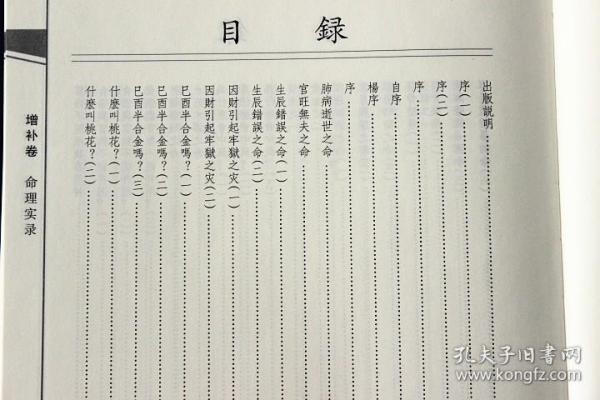 目錄
出版説明
序(一)
序(二)
序
自序
楊序
序
肺病逝世之命
官旺無夫之命
生辰錯誤之命(一)
生辰錯誤之命(二)
因財引起牢獄之灾(一)
因財引起牢獄之灾(二)
巳酉半合金嗎?(一)
巳酉半合金嗎?(二)
巳酉半合金嗎?(三)
什麽叫桃花?(一)
什麽叫桃花?(二)
增补卷 命理实录
孔夫子旧书网
www.kongfz.com